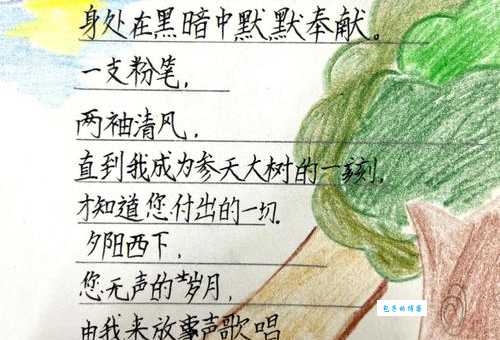 身处在黑暗中默默奉献。
一支粉笔，
两袖清风，
直到我成为参天大树的一刻，
才知道您付出的一切.
夕阳西下，
您无声的岁月，
由我来放声歌唱
包图的博客